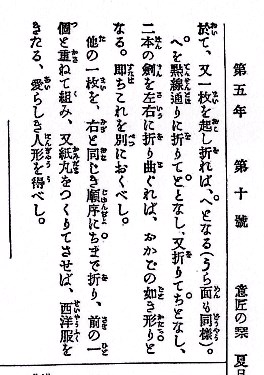 第五年 第十號 意匠の栞
於て、又一枚を起し折れば、へとなる(うら面も同樣)。
へを點線通りに折りてととなし、又折りてちとなし、
二本の劍を左右に折り曲ぐれば、おかでの如き形りと
なる。即ちこれを別におくべし。
他の一枚を、右と同じき順序にちまで折り、前の一
個と重ねて組み、又紙丸をつくりてさせば、西洋服を
きたる、愛らしき人形を得べし。